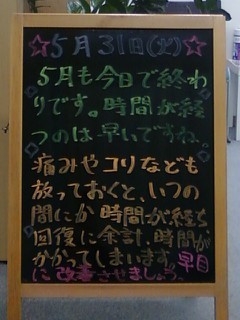 ☆5月31日(火)☆
5月も今日で終わ
りです。時間が経
つのは早いですね。
痛みやコリなども
放っておくと、いつの
間にか時間が経ち
回復に余計時間が
かかってしまいます。早目
に改善させましょう。